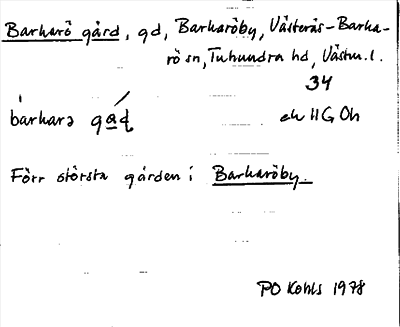 Barkarö gård, gd, Barkaröby, Västerås-Barka-
rö sn, Tuhundra hd, Västm.l.
34
barkarə
enl HG Oh
Förr största gården i Barkaröby.
PO Kohls 1978